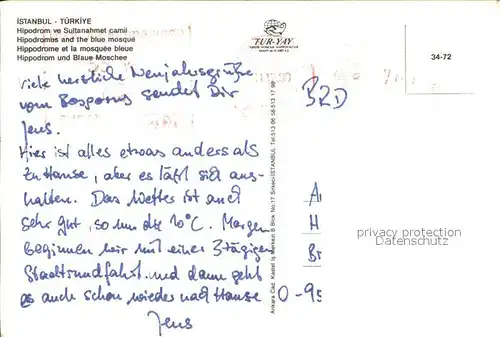 İSTANBUL - TÜRKİYE
Hipodrom ve Sultanahmet camii
Hipodromus and the blue mosque
Hippodrome et la mosquée bleue
Hippodrom und Blaue Moschee
TUR-YAY
34-72
Viele herzliche Neujahrsgrüße
vom Bosporus sendet Dir
Jens.
Hier ist alles etwas anders als
zu Hause, aber es läßt sich aus-
halten. Das Wetter ist auch
sehr gut, so um die 10°C. Morgen
beginnen wir mit einer 3tägigen
Stadtrundfahrt und dann geht
es auch schon wieder nach Hause
Jens
Ankara Cad. Kastel İş Merkezi B Blok No.17 Sirkeci-İSTANBUL Tel:513 06 58-513 17 98
BRD
A
H
Br
O-95
privacy protection
Datenschutz